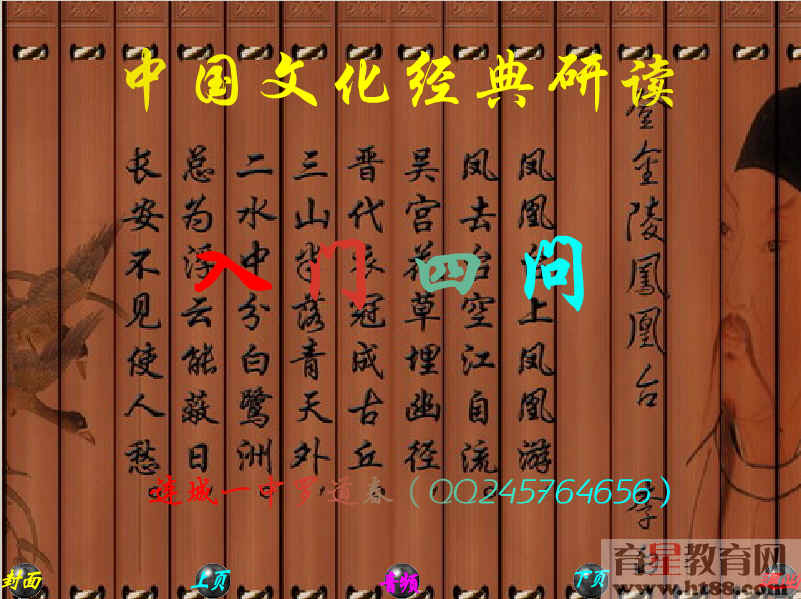 中国文化经典研读
金陵鳳凰台
凤凰台上凤凰游，
凤去台空江自流。
吴宫花草埋幽径，
晋代衣冠成古丘。
三山半落青天外，
二水中分白鹭洲。
总为浮云能蔽日，
长安不见使人愁。
入门四问
连城一中罗道春（QQ245764656）
封面
上页
音频
下页
育星教育网
www.ht88.com